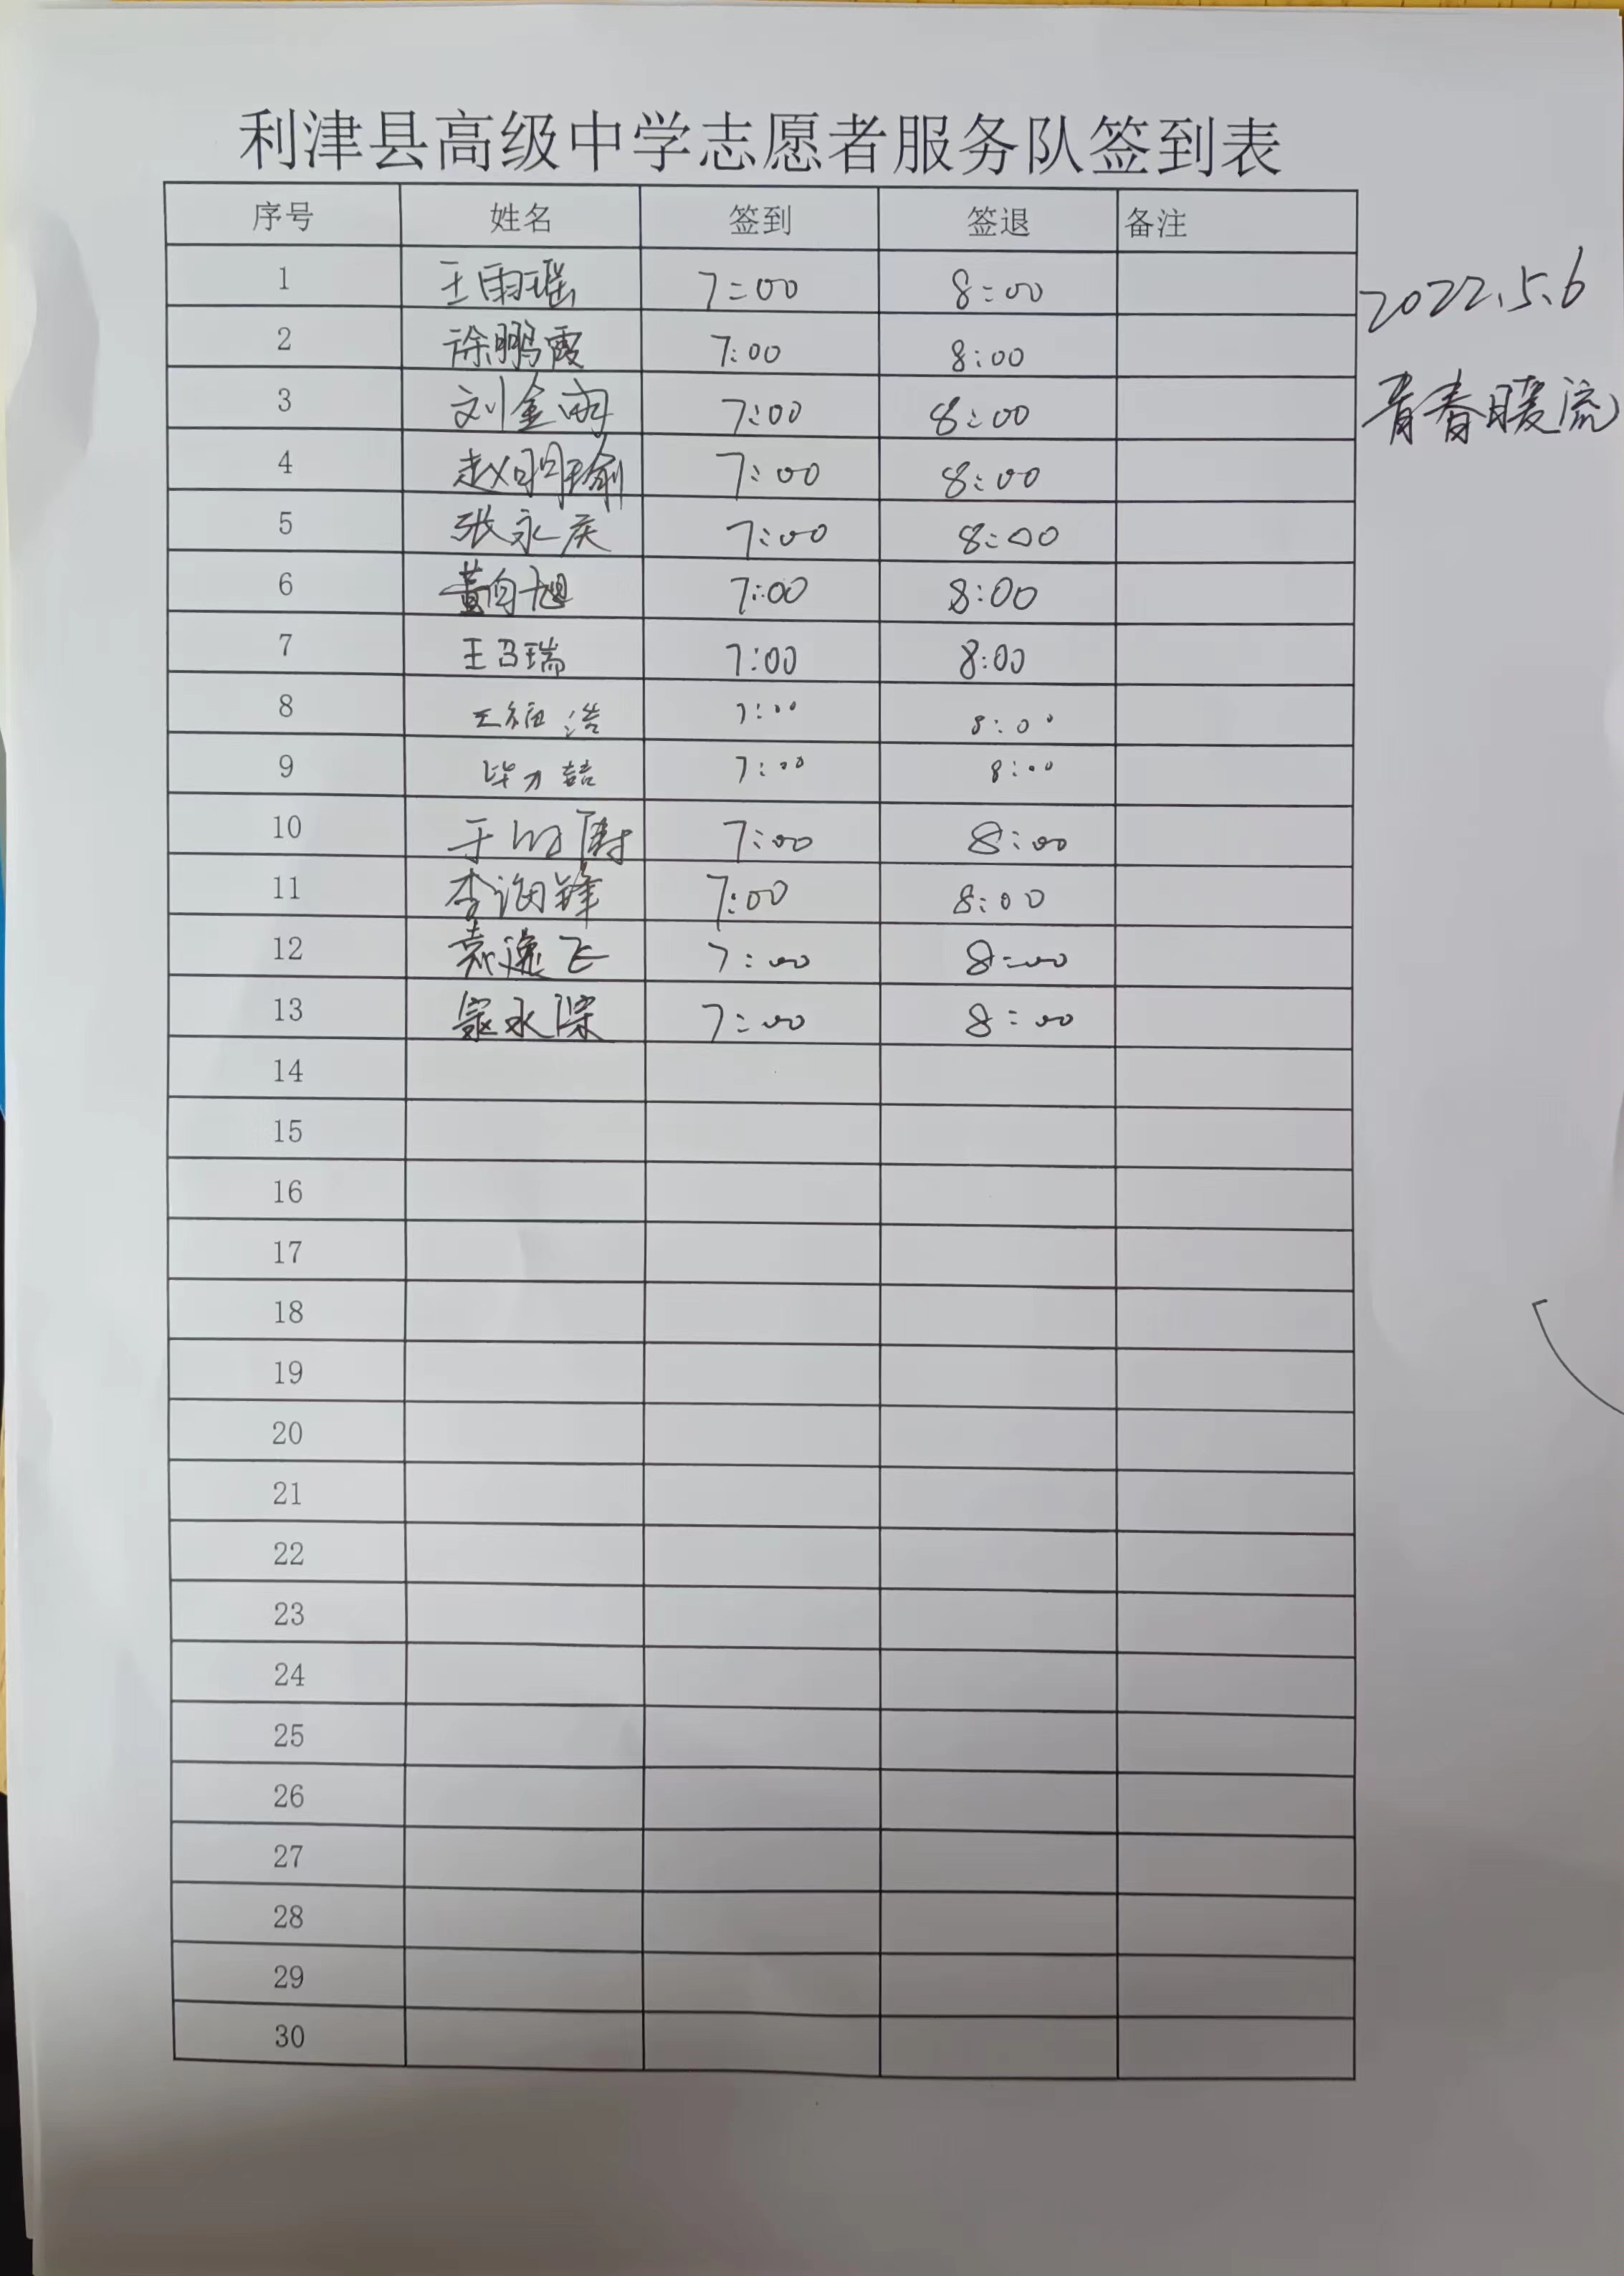 利津县高级中学志愿者服务队签到表
序号 姓名 签到 签退 备注
1 王雨瑶 7:00 8:00
2022.5.6
2 徐鹏霞 7:00 8:00
3 刘金雨 7:00 8:00
青春暖流
4 赵明瑜 7:00 8:00
5 张永庆 7:00 8:00
6 黄向旭 7:00 8:00
7 王召瑞 7:00 8:00
8 王 浩 7:00 8:00
9 毕 7:00 8:00
10 于 7:00 8:00
11 李海锋 7:00 8:00
12 袁逸飞 7:00 8:00
13 寇永深 7:00 8:00
14
15
16
17
18
19
20
21
22
23
24
25
26
27
28
29
30